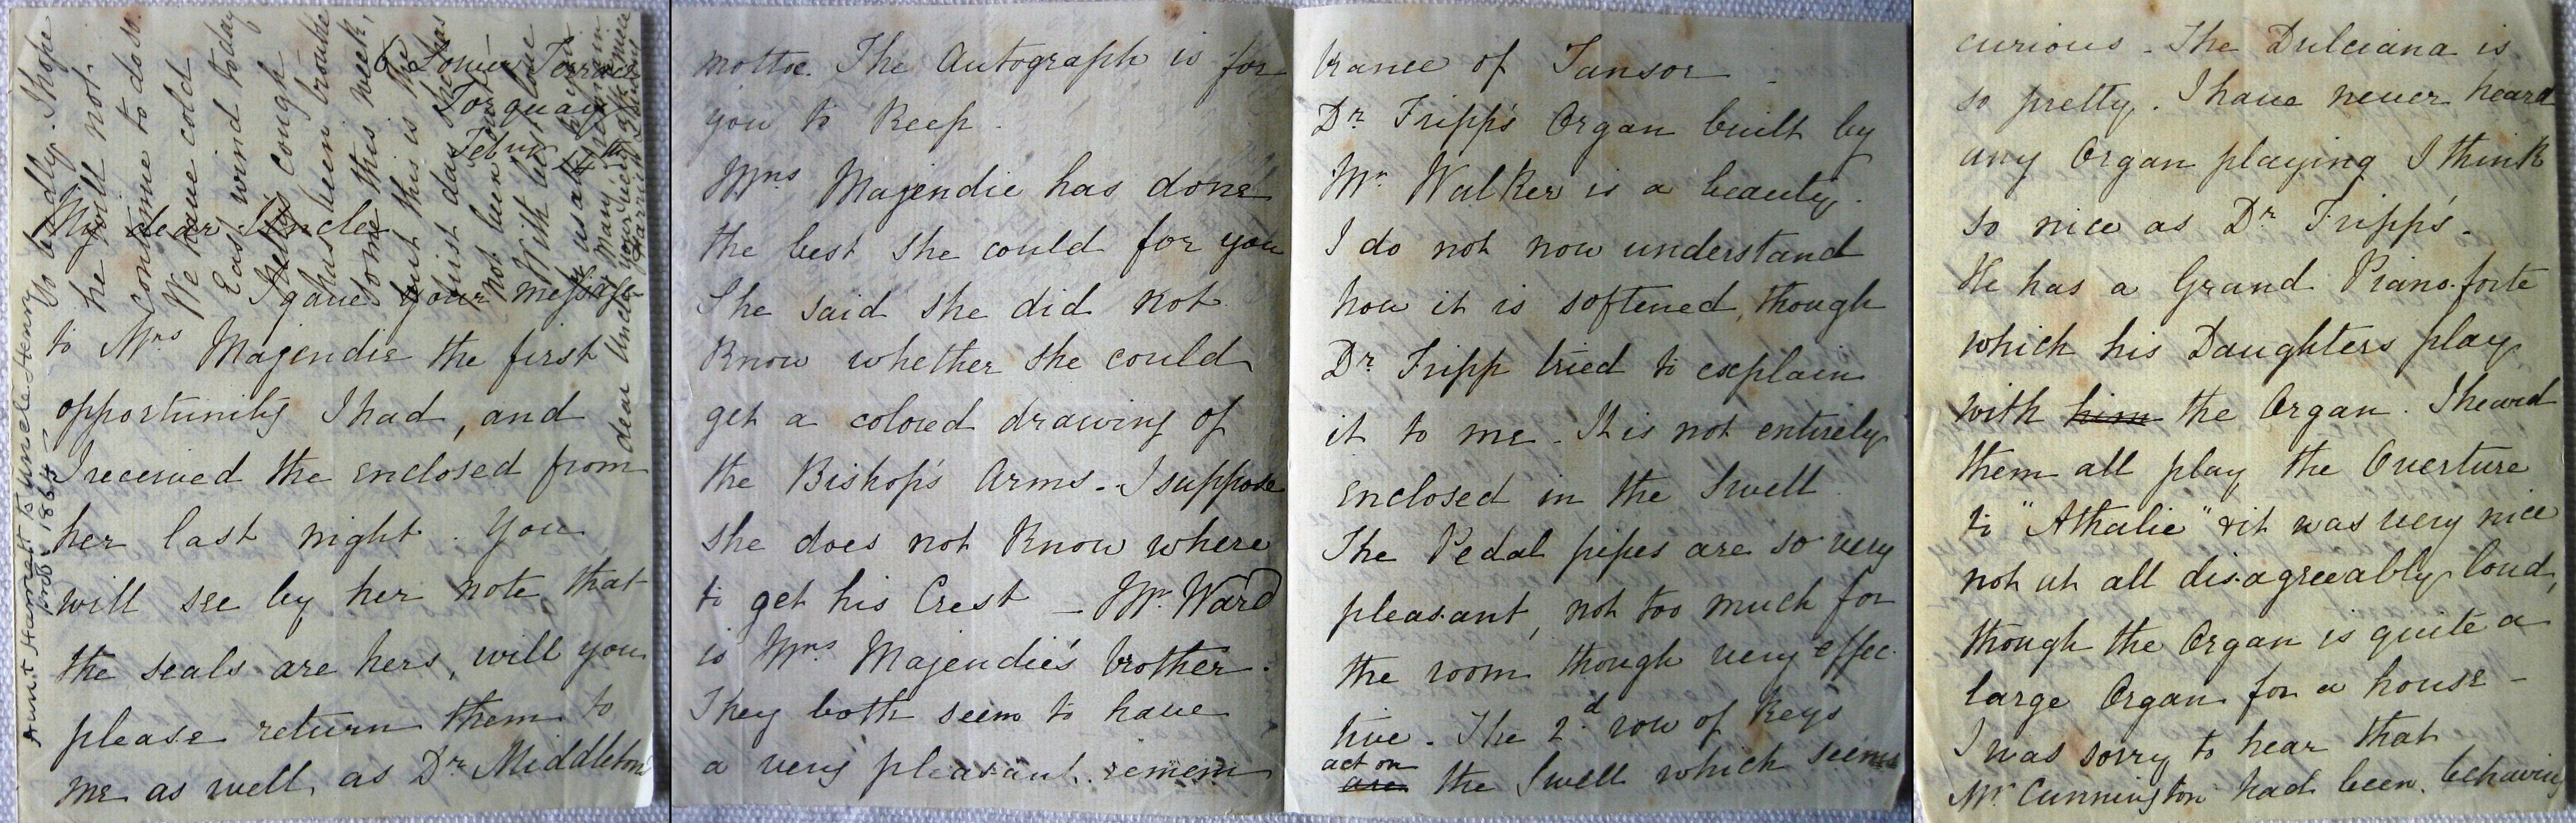 6 Tower Terrace
Torquay
My dear Uncle
I gave your message
to Mrs Majendie the first
opportunity I had, and
I received the enclosed from
her last night. You
will see by her note that
the seals are hers, will you
please return them to
me as well as Dr Middleton's
motto. The Autograph is for
you to keep.
Mrs Majendie has done
the best she could for you
She said she did not
know whether she could
get a colored drawing of
the Bishop's Arms. I suppose
she does not know where
to get his Crest – Mr. Ward
is Mrs Majendie's brother.
They both seem to have
a very pleasant remem
brance of Tansor –
Dr Fripp's Organ built by
Mr Walker is a beauty.
I do not now understand
how it is softened, though
Dr Fripp tried to explain
it to me. It is not entirely
enclosed in the Swell.
The Pedal pipes are so very
pleasant, not too much for
the room though very effec-
tive. The 2d row of keys
act on
are the Swell which seems
curious – The Dulciana is
so pretty. I have never heard
any Organ playing I think
so nice as Dr Fripp's.
He has a Grand Pianoforte
which his Daughters play
with him the Organ. I heard
them all play the Overture
to "Athalie" & it was very nice
not at all disagreeably loud,
though the Organ is quite a
large Organ for a house –
I was sorry to hear that
Mr Cunnington had been behaving
so badly. I hope
he will not
continue to do so.
We have cold
East wind today
Kelly's cough
has been trouble
some this week,
but this is the
first day she has
not been out
With best love
from us all, I remain
dear Uncle your very affte niece
Harriett
Aunt Harriett to Uncle Henry
1864